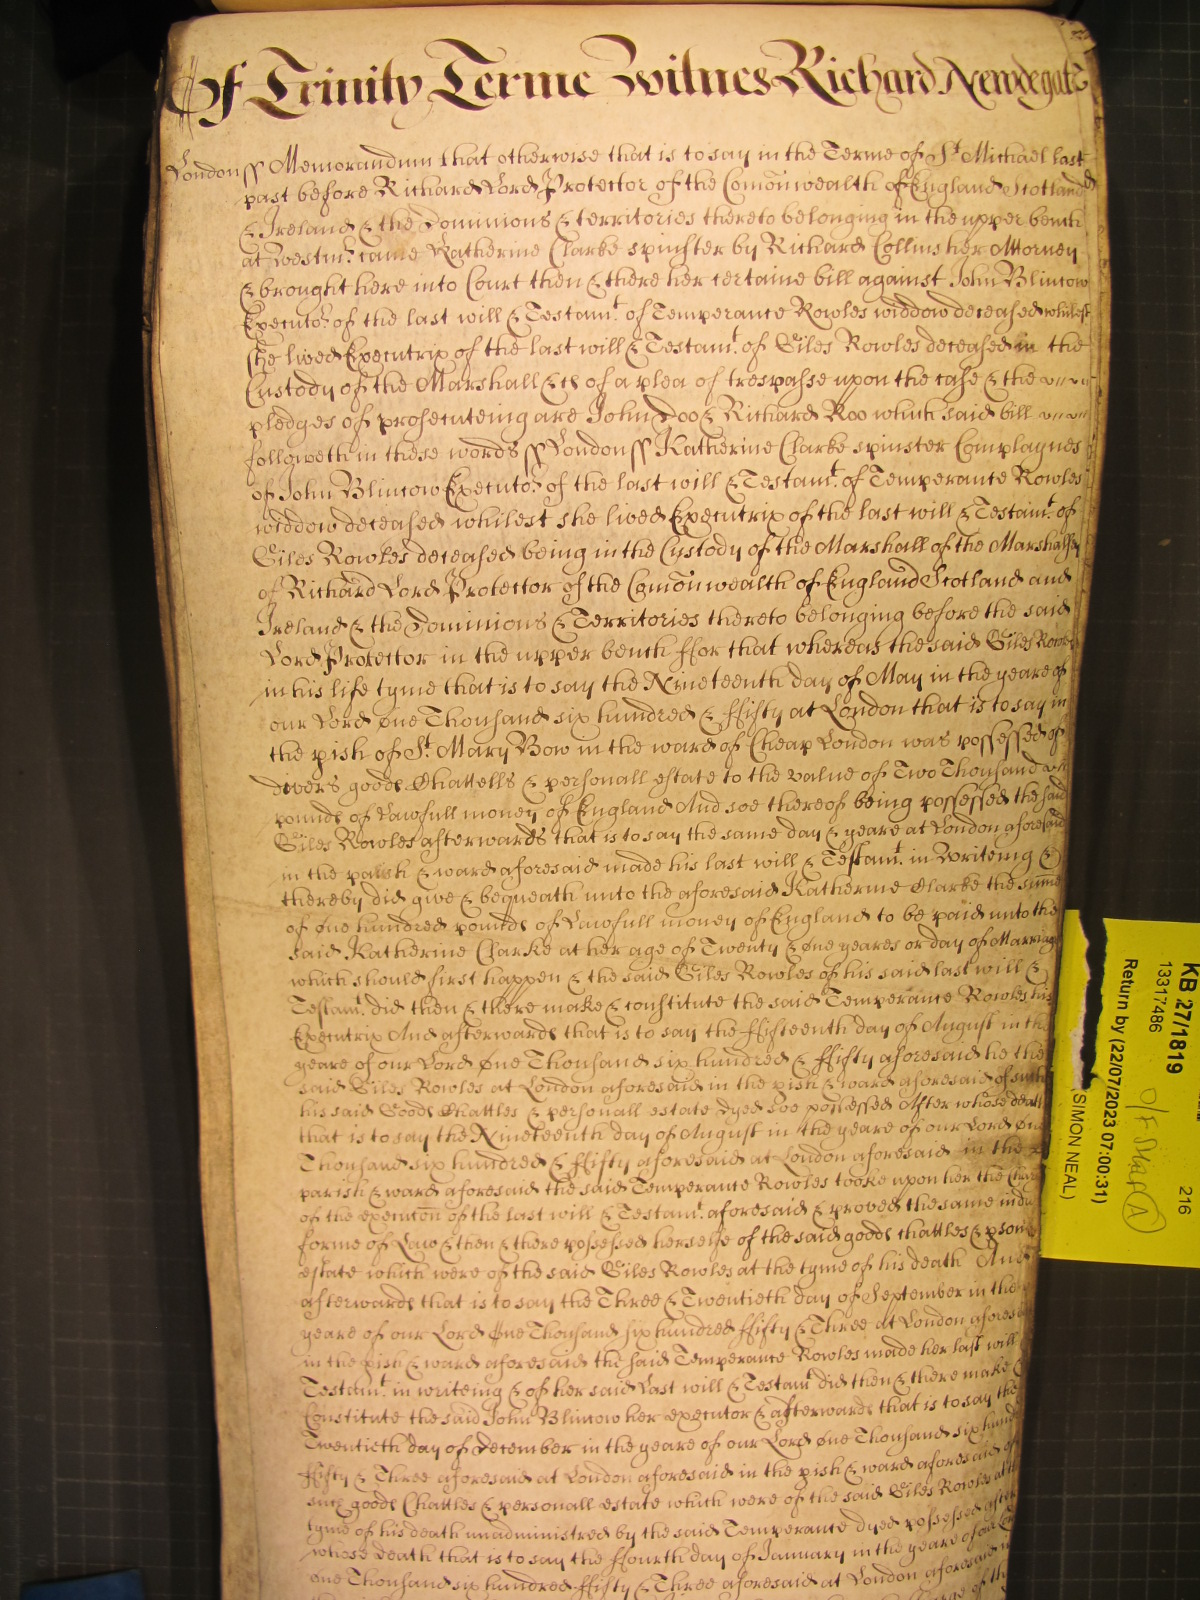 Of Trinity Terme Witnes Richard Newdegate
London ss Memorandum that otherwise that is to say in the Terme of St Michael last
past before Richard Lord Protector of the Comonwealth of England Scotland
& Ireland & the Dominions & territories thereto belonging in the upper bench
at Westmr. came Katherine Clarke spinster by Richard Collins her Attorney
& brought here into Court then & there her certaine bill against John Blincow
Executor. of the last will & Testamt. of Temperance Rowles widdow deceased whilest
she lived Executrix of the last will & Testamt. of Giles Rowles deceased in the
Custody of the Marshall &c of a plea of trespasse upon the case & the
pledges of prosecuteing are John Doo & Richard Roo which said bill
followeth in these words ss London ss Katherine Clarke spinster Complaynes
of John Blincow Executor. of the last will & Testamt. of Temperance Rowles
widdow deceased whilest she lived Executrix of the last will & Testamt. of
Giles Rowles deceased being in the Custody of the Marshall of the Marshalsey
of Richard Lord Protector of the Comonwealth of England Scotland and
Ireland & the Dominions & Territories thereto belonging before the said
Lord Protector in the upper bench ffor that whereas the said Giles Rowles
in his life tyme that is to say the Nineteenth day of May in the yeare of
our Lord One Thousand six hundred & ffifty at London that is to say in
the pish of St. Mary Bow in the ward of Cheap London was possessed of
divers goods Chattells & personall estate to the value of Two Thousand
pounds of Lawfull money of England And soe thereof being possessed the said
Giles Rowles afterwards that is to say the same day & yeare at London aforesaid
in the parish & ward aforesaid made his last will & Testamt. in Writeing &
thereby did give & bequeath unto the aforesaid Katherine Clarke the sume
of One hundred pounds of Lawfull money of England to be paid unto the
said Katherine Clarke at her age of Twenty & One yeares or day of Marriage
which should first happen & the said Giles Rowles of his said last will &
Testamt. did then & there make & constitute the said Temperance Rowles his
Executrix And afterwards that is to say the ffifteenth day of August in the
yeare of our Lord One Thousand six hundred & ffifty aforesaid he the
said Giles Rowles at London aforesaid in the pish & ward aforesaid of such
his said Goods Chattles & personall estate dyed soe possessed After whose death
that is to say the Nineteenth day of August in the yeare of our Lord One
Thousand six hundred & ffifty aforesaid at London aforesaid in the
parish & ward aforesaid the said Temperance Rowles tooke upon her the
of the execucon of the last will & Testamt. aforesaid & proved the same in due
forme of Law & then & there possessed herselfe of the said goods chattles &
estate which were of the said Giles Rowles at the tyme of his death And
afterwards that is to say the Three & Twentieth day of September in the
yeare of our Lord One Thousand six hundred ffifty & Three at London
in the pish & ward aforesaid the said Temperance Rowles made her last will
Testamt. in writeing & of her said Last will & Testamt did then & there make
Constitute the said John Blincow her executor & afterwards that is to say the
Twentieth day of December in the yeare of our Lord One Thousand six
ffifty & Three aforesaid at London aforesaid in the pish & ward aforesaid of
such goods Chattles & personall estate which were of the said Giles Rowles
tyme of his death unadministred by the said Temperance dyed possessed After
whose death that is to say the ffourth day of January in the yeare of our
One Thousand six hundred ffifty & Three aforesaid at London aforesaid
KB 27/819
13317486
216
Return by (22/07/2023 07:00:31)
SIMON NEAL)
A